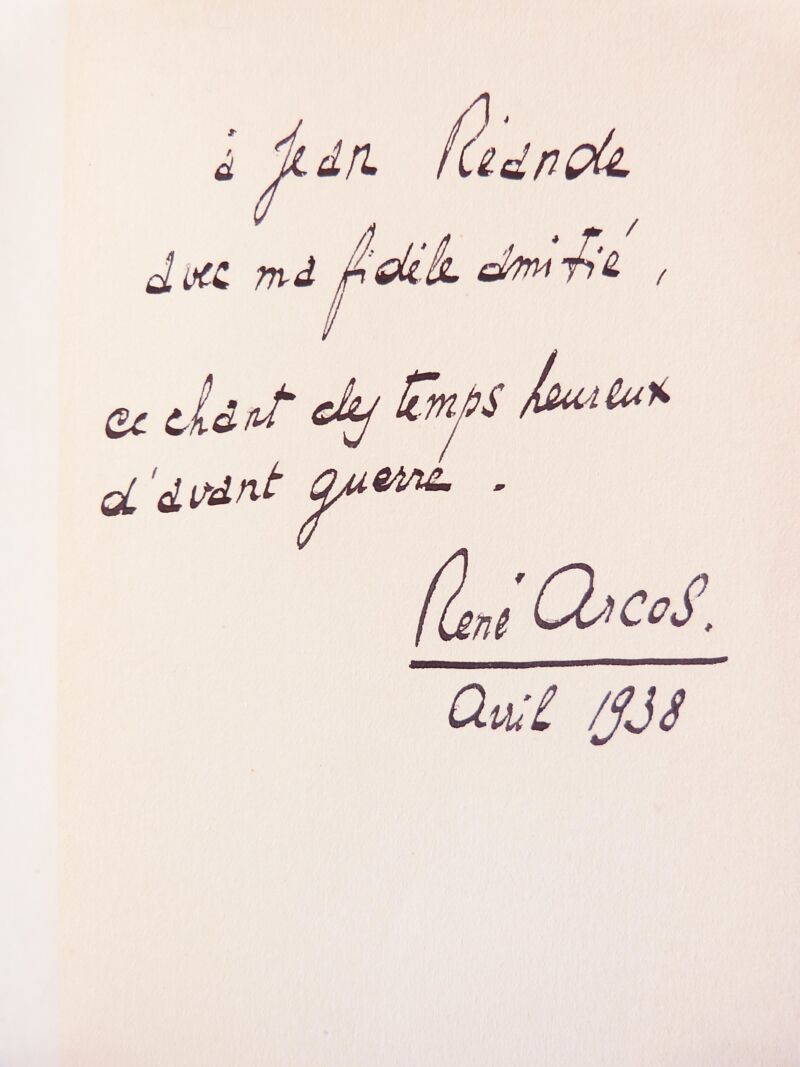 à Jean Réande
avec ma fidèle amitié,
ce chant des temps heureux
d'avant guerre.
René Arcos.
Avril 1938